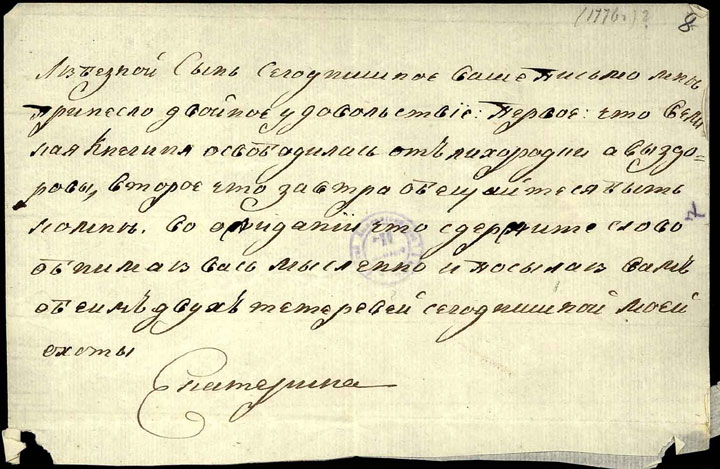 (1776 г.)?
8
Любезной Сынъ Сегоднишное ваше Письмо мнѣ
принесло двойное удовольствïе: Первое: что Вели
кая Княгиня освободилась отъ лихорадки а вы здо-
ровы, второе что завтра обещаитеся быть
ко мнѣ. Во ожиданïй что сдержите слово
обнимаю васъ мысленно и посылаю вамъ
обеимъ двухъ тетеревей сегоднишной моей
охоты
Екатерина